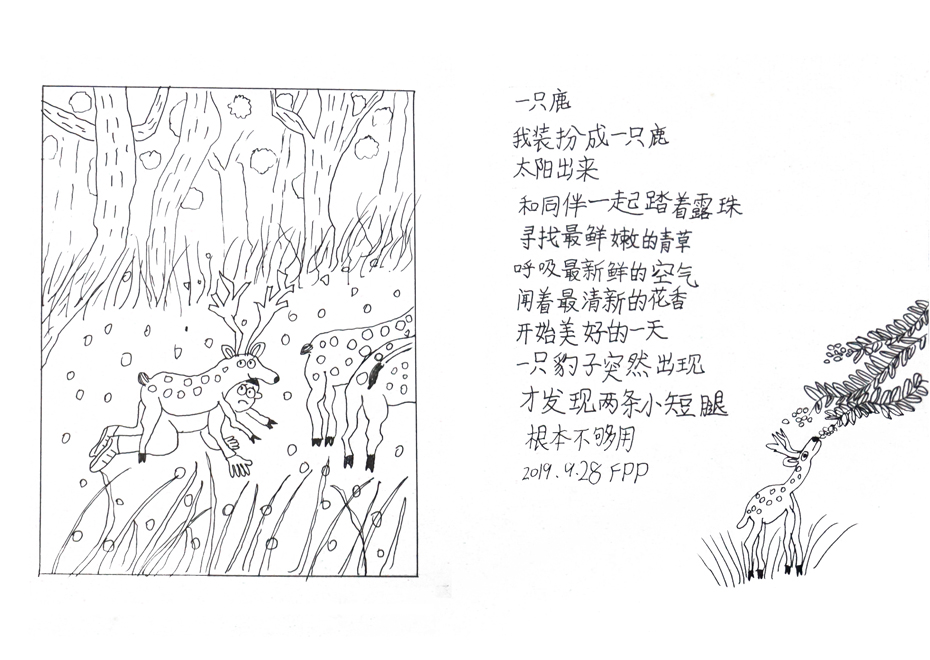 一只鹿
我装扮成一只鹿
太阳出来
和同伴一起踏着露珠
寻找最鲜嫩的青草
呼吸最新鲜的空气
闻着最清新的花香
开始美好的一天
一只豹子突然出现
才发现两条小短腿
根本不够用
2019.9.28 FPP